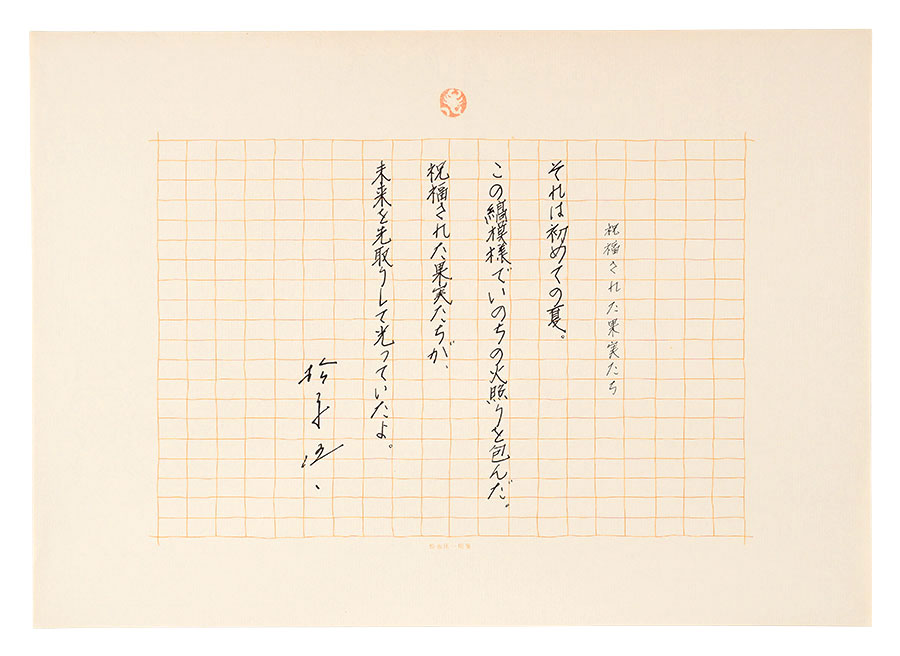 祝福された果実たち
それは初めての夏。
この縞模様でいのちの火照りを包んだ。
祝福された果実たちが、
未来を先取りして光っていたよ。